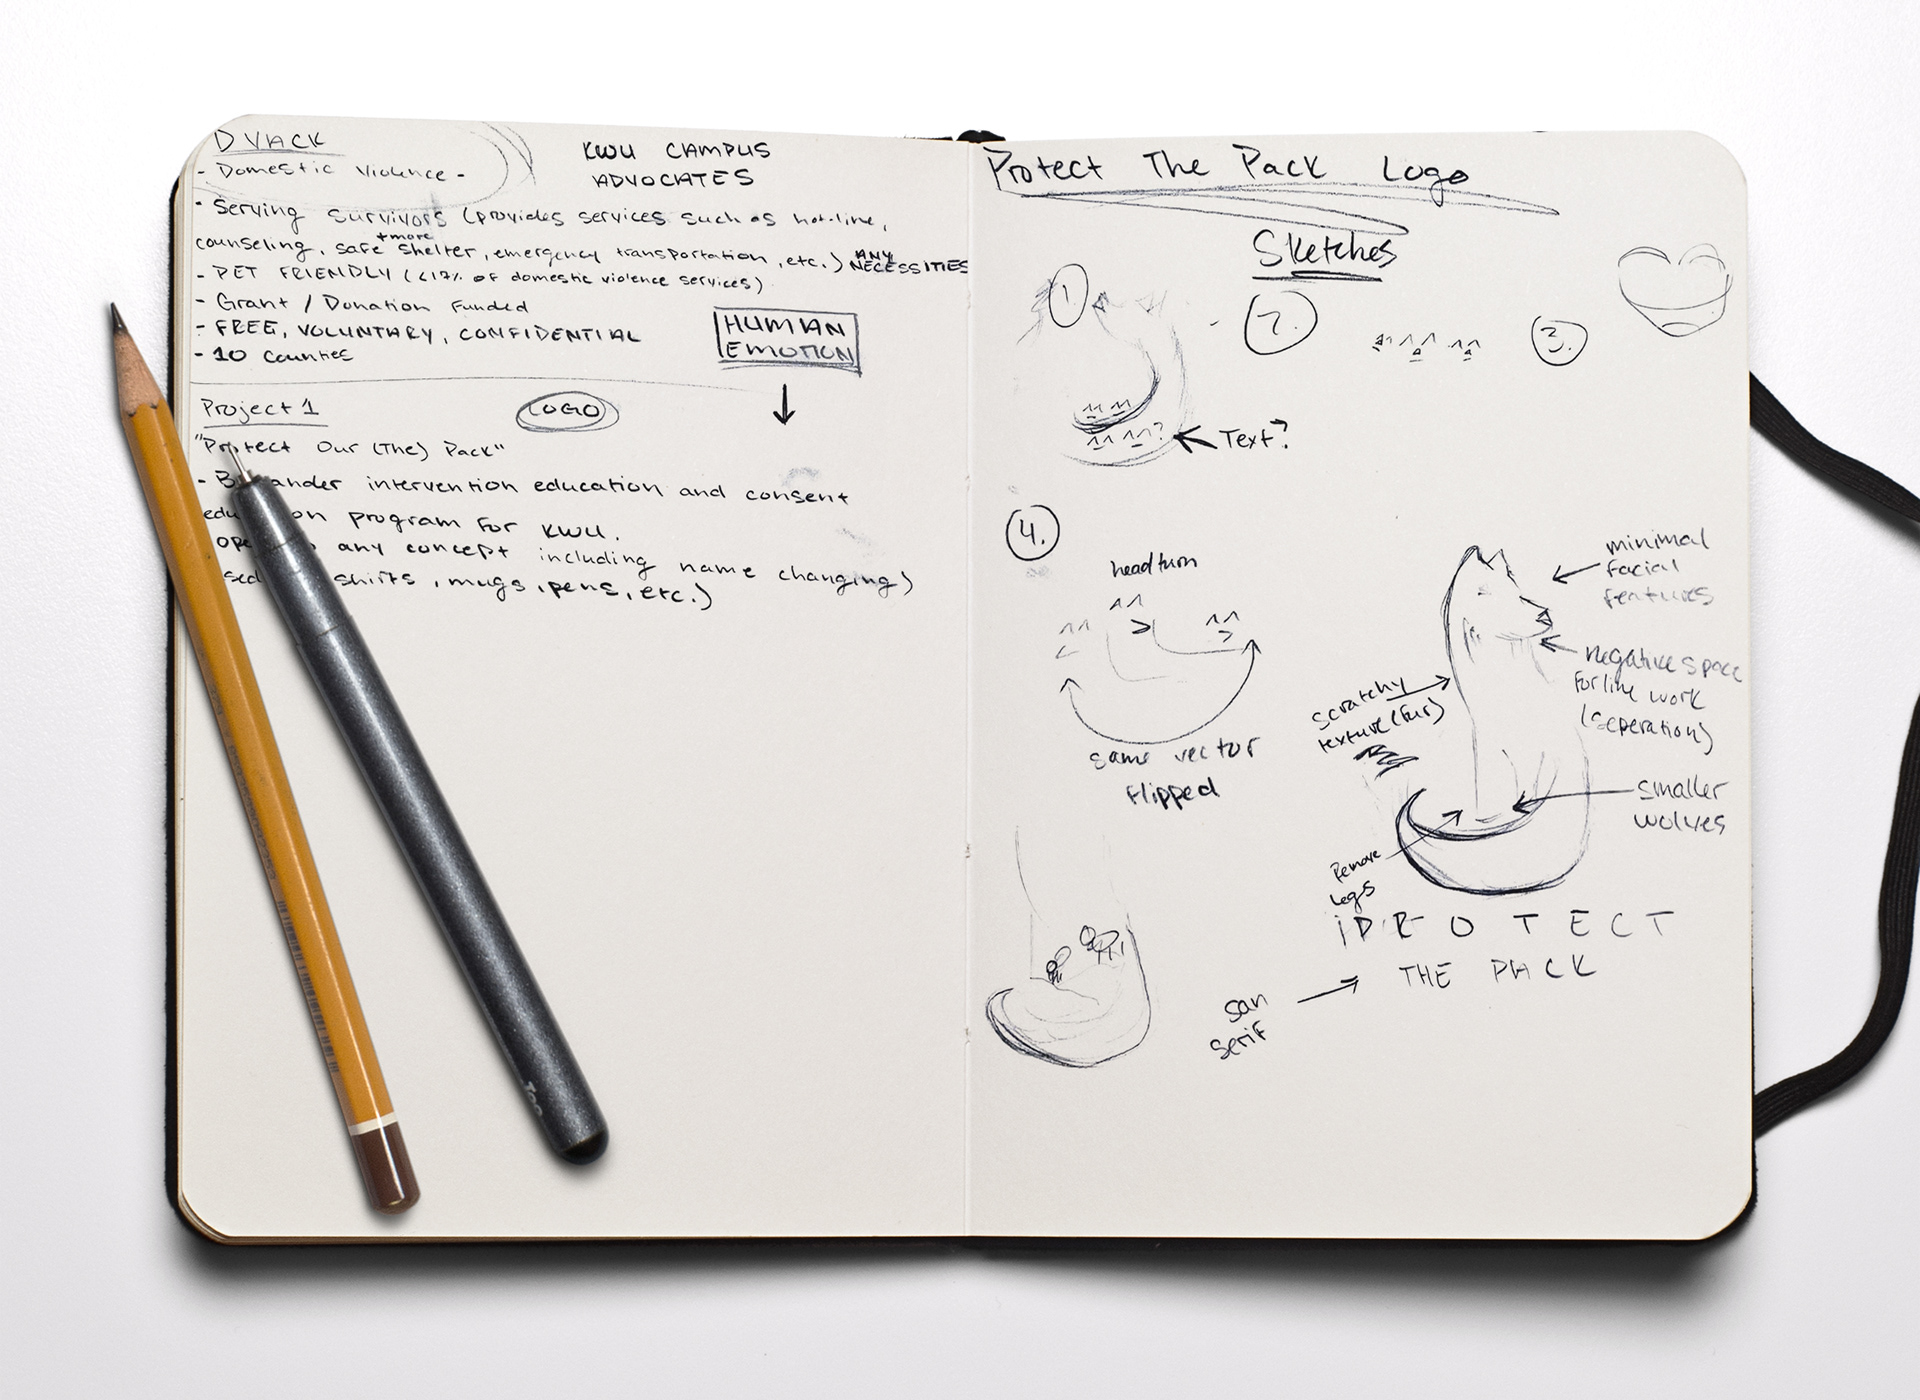 DVACK
- Domestic Violence -
KWU CAMPUS
ADVOCATES
- Serving survivors (provides services such as hot-line,
counseling, safe shelter, emergency transportation, etc.) ANY NECESSITIES
+more
- PET FRIENDLY (<17% of domestic violence services)
- Grant / Donation Funded
- FREE, VOLUNTARY, CONFIDENTIAL
- 10 Counties
HUMAN
EMOTION
Project 1
LOGO
"Protect Our (The) Pack"
- B ander intervention education and consent
edu on program for KWU.
ope any concept including name changing)
sed shirts, mugs, pens, etc.)
Too
Protect The Pack Logo
Sketches
1.
2.
3.
Text?
4.
head turn
same vector
flipped
minimal
facial
features
negative space
for line work
(seperation)
scratchy
texture (fur)
smaller
wolves
Remove
legs
PROTECT
THE PACK
san
serif